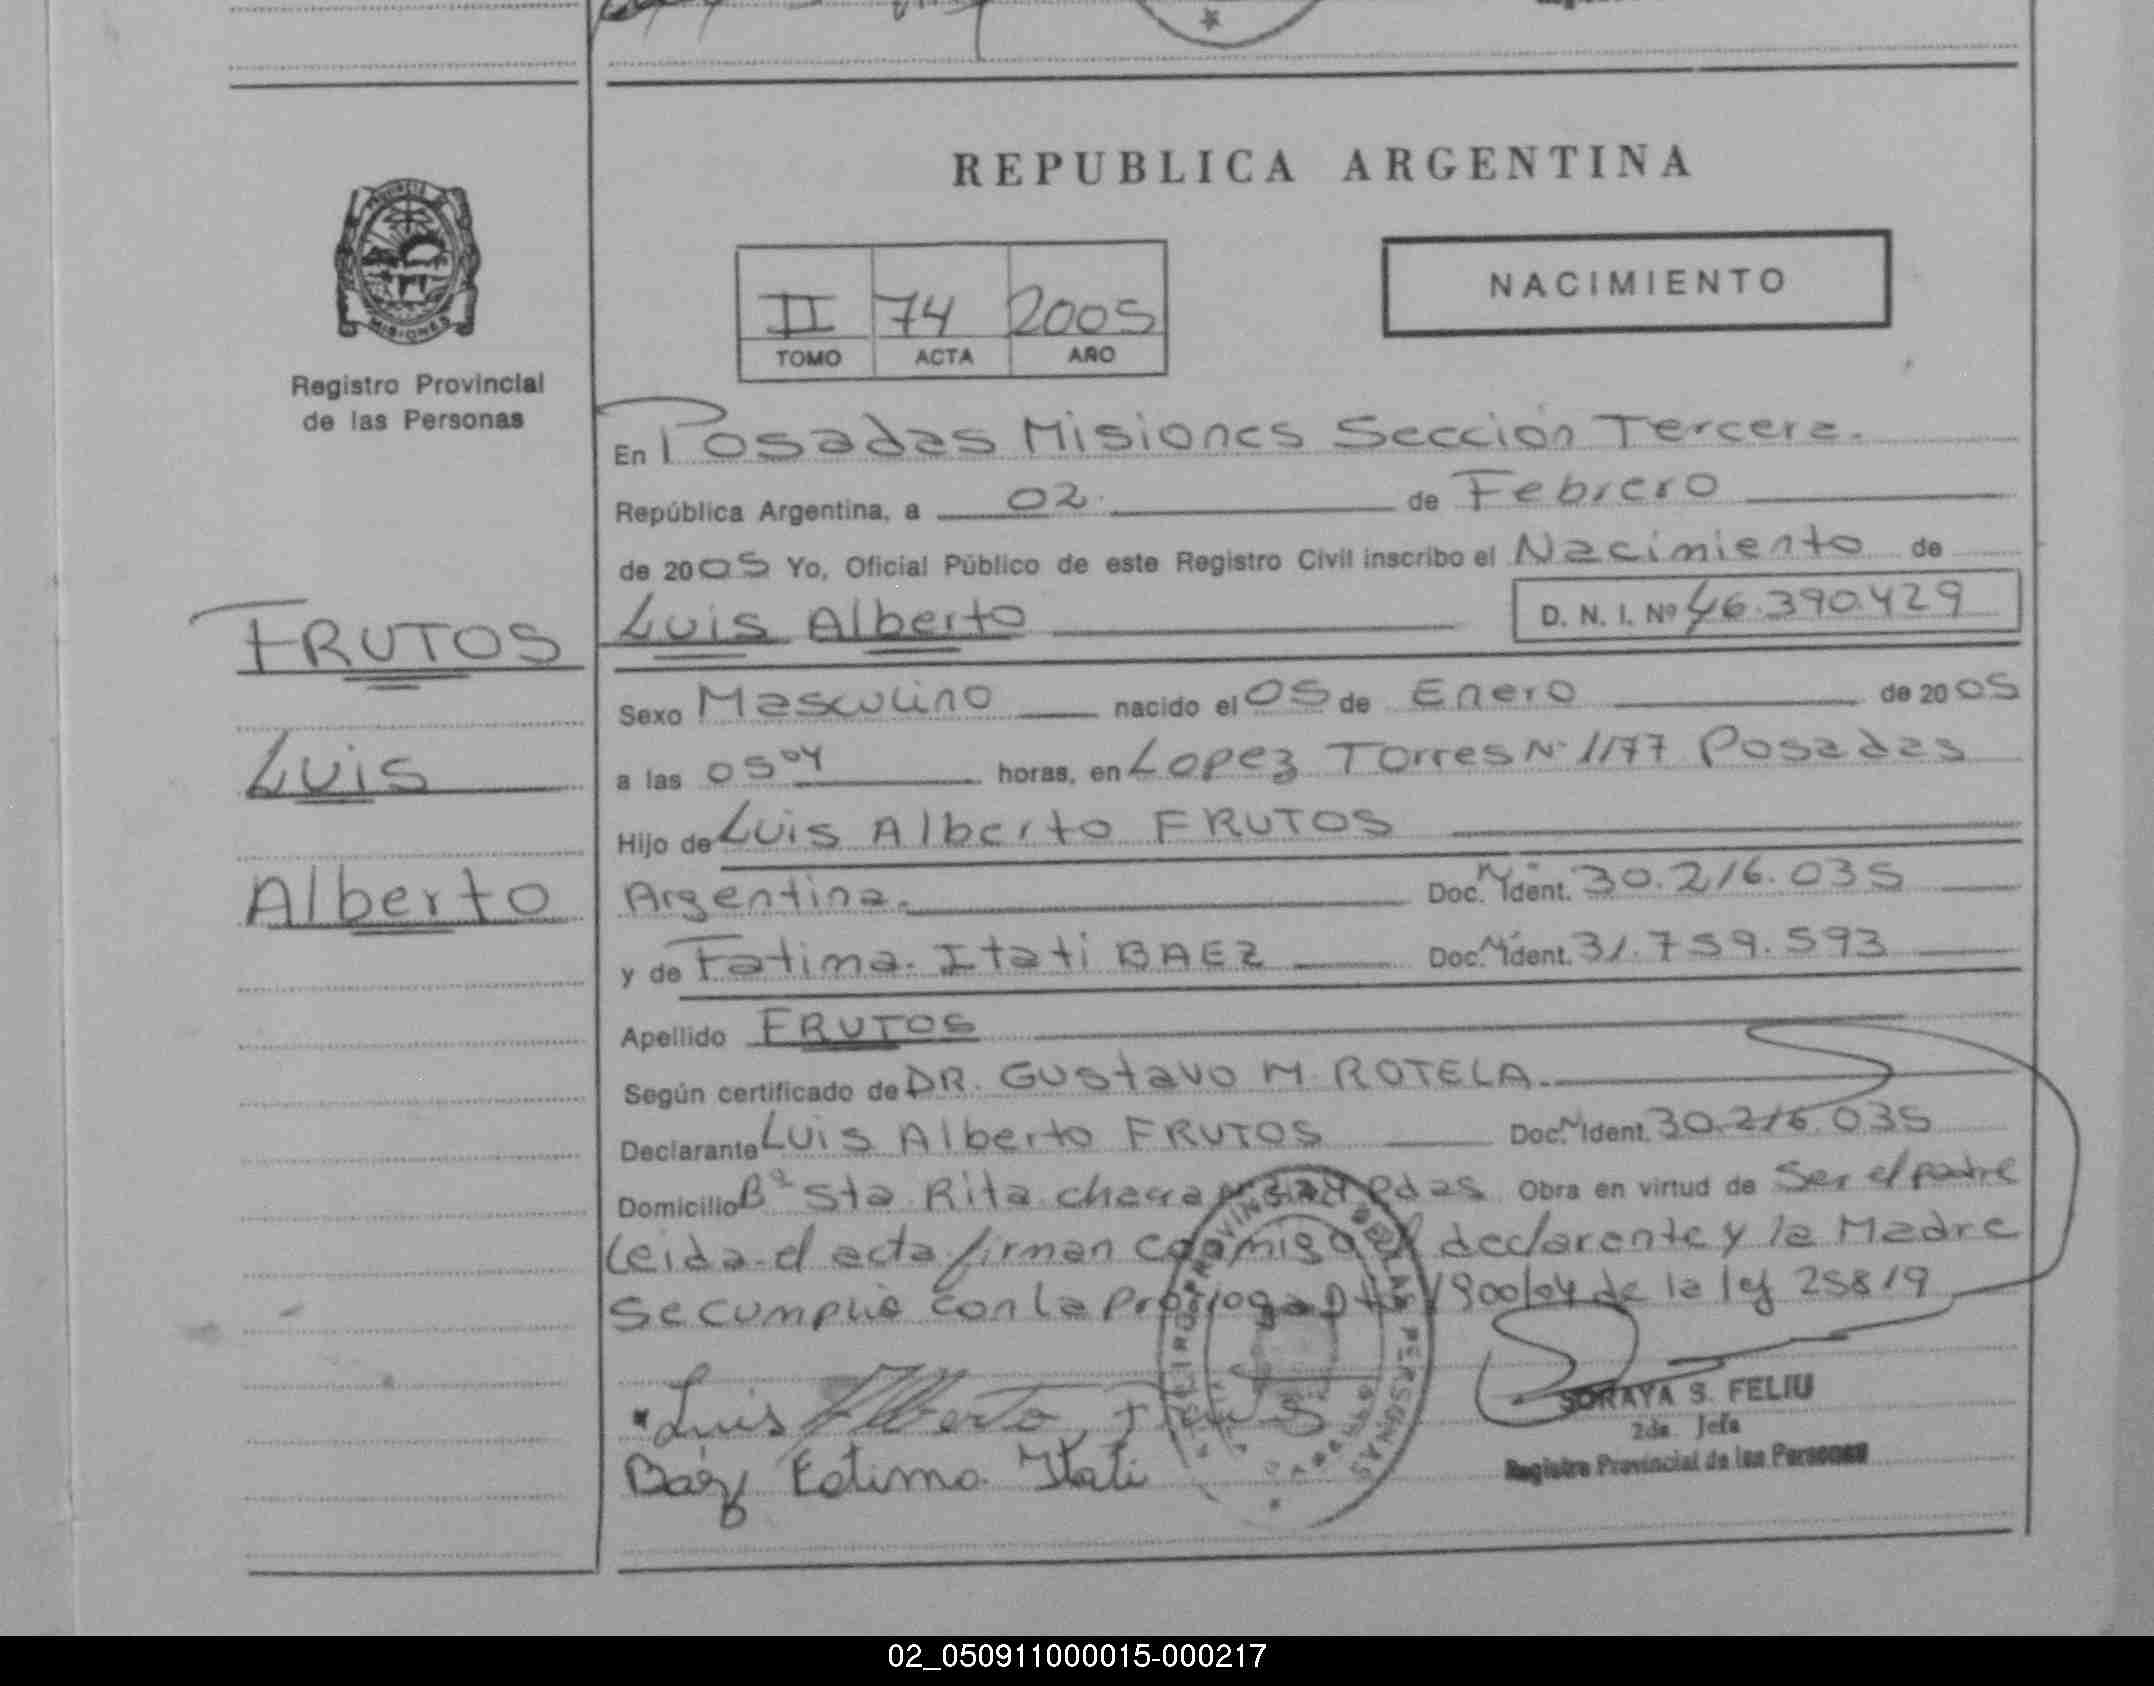 REPUBLICA ARGENTINA
PROVINCIA
MISIONES
Registro Provincial
de las Personas
II 74 2005
TOMO ACTA AÑO
NACIMIENTO
En Posadas Misiones Sección Tercera.
República Argentina, a 02 de Febrero
de 2005 Yo, Oficial Público de este Registro Civil inscribo el Nacimiento de
Luis Alberto D. N. I. Nº 46.390.429
FRUTOS
Luis
Alberto
Sexo Masculino nacido el 05 de Enero de 2005
a las 05 04 horas, en Lopez Torres Nº 1177 Posadas
Hijo de Luis Alberto FRUTOS
Argentina. Doc. Ident. 30.216.035
y de Fatima Itati BAEZ Doc. Ident. 31.759.593
Apellido FRUTOS
Según certificado de DR. Gustavo M ROTELA.
Declarante Luis Alberto FRUTOS Doc. Ident. 30.216.035
Domicilio Bº Sta Rita chacra Obra en virtud de Ser el padre
Leida el acta firman conmigo el declarante y la Madre
Se cumplió con la prorroga 1900/04 de la ley 25819
Luis Alberto Frutos
Báez Fatima Itati
SORAYA S. FELIU
2da. Jefa
Registro Provincial de las Personas
02_050911000015-000217